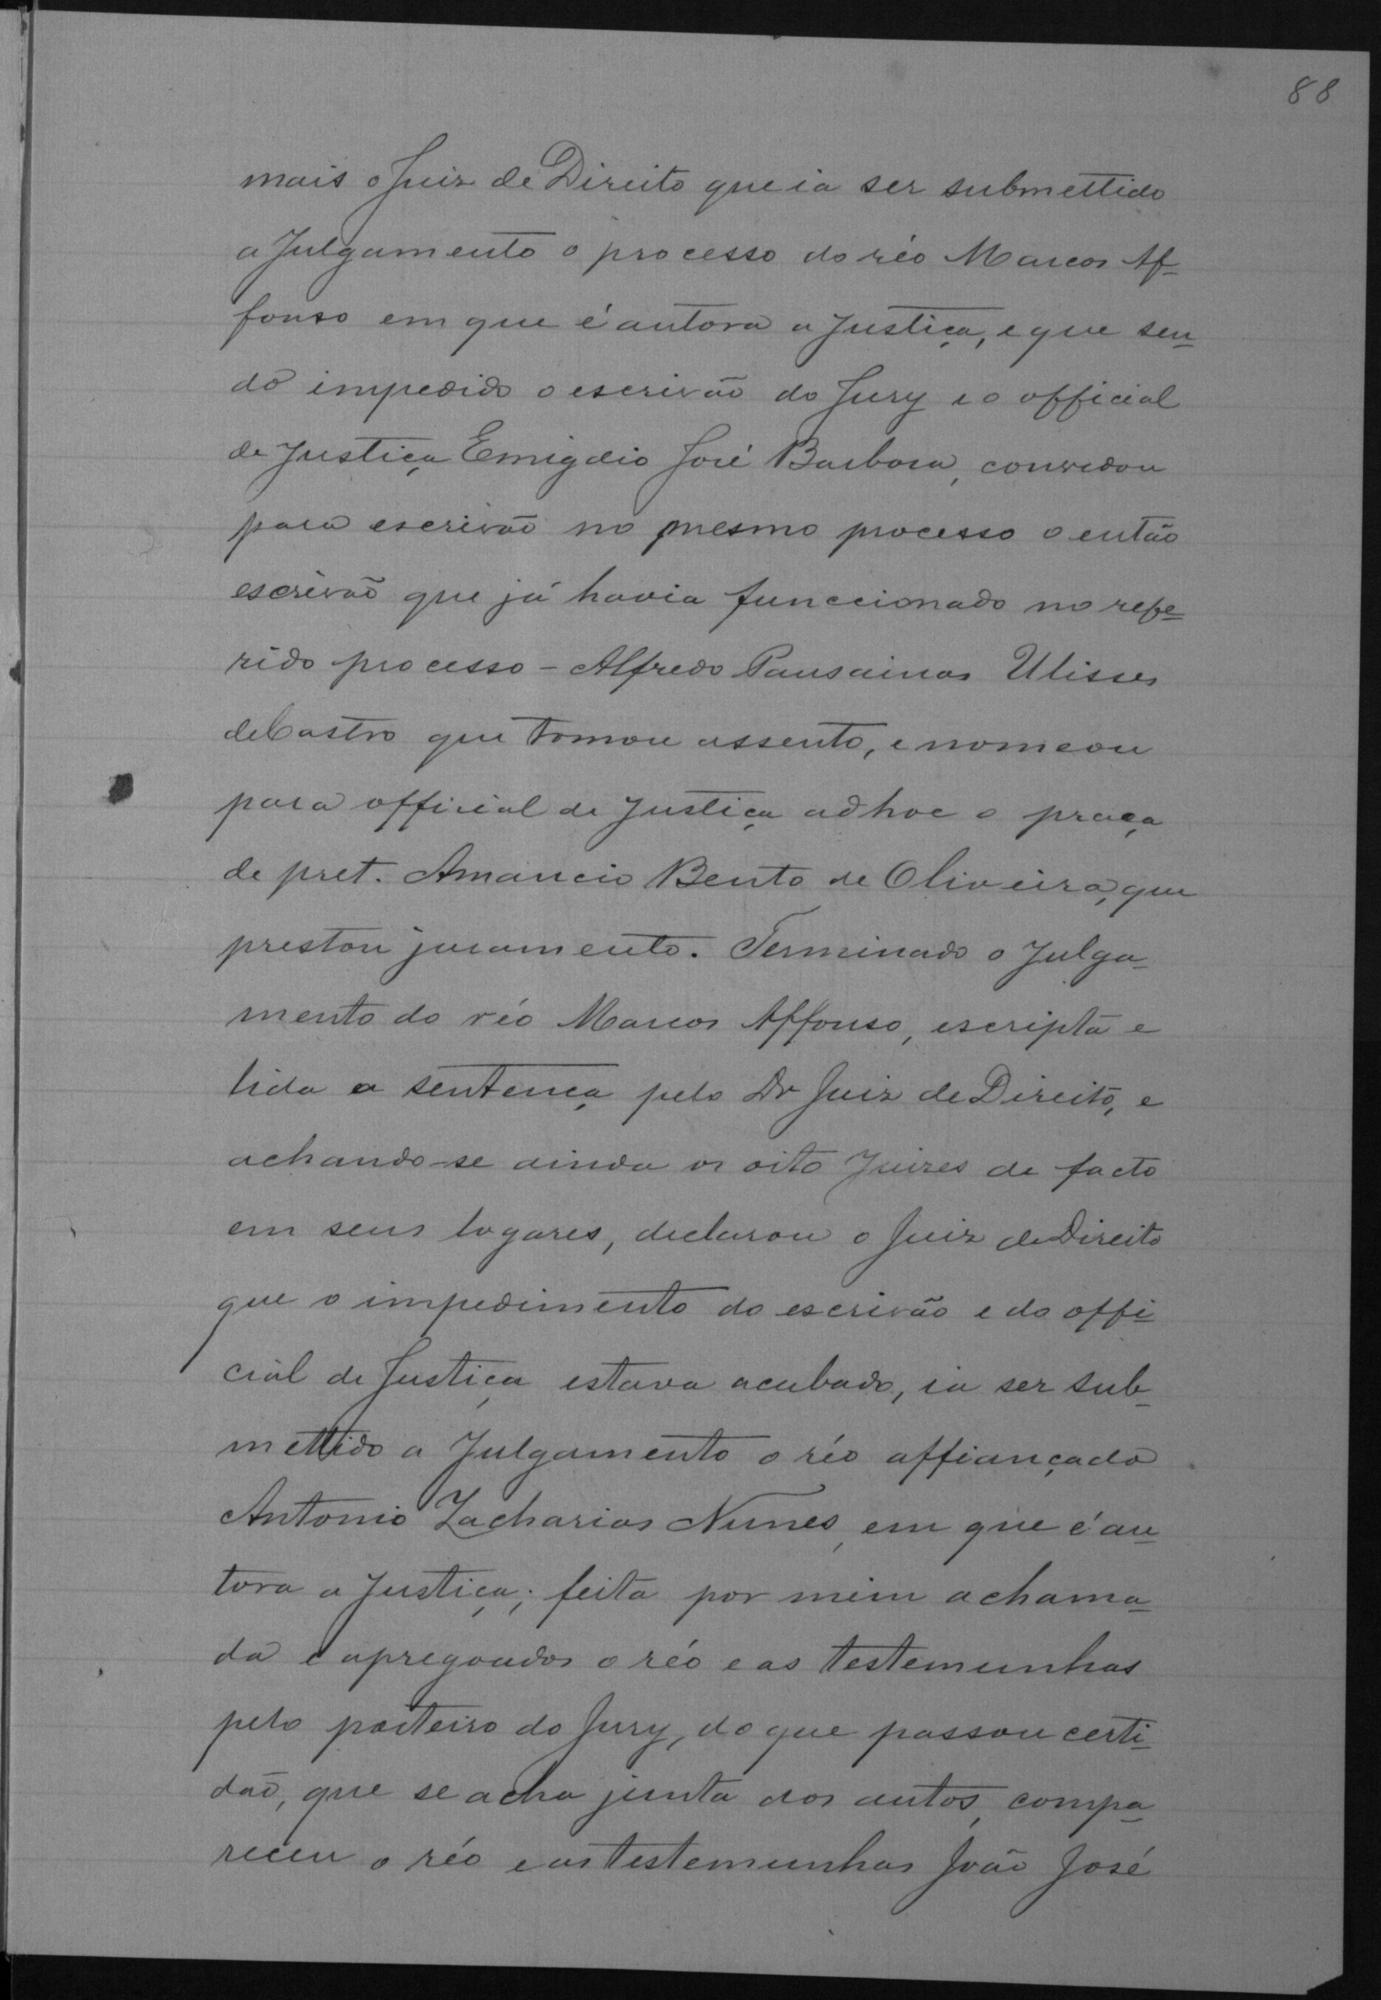 88
mais o Juiz de Direito que ia ser submettido
a Julgamento o processo do réo Marcos Af-
fonso em que é autora a Justiça, e que sen-
do impedido o escrivão do Jury e o official
de Justiça Emigdio José Barbosa, convidou
para escrivão no mesmo processo o então
escrivão que já havia funccionado no refe-
rido processo - Alfredo Pausainas Ulisses
de Castro que tomou assento, e nomeou
para official de Justiça adhoc o praça
de pret. Amancio Bento de Oliveira, que
prestou juramento. Terminado o Julga-
mento do réo Marcos Affonso, escripta e
lida a sentença pelo Dr Juiz de Direito, e
achando-se ainda os oito Juizes de facto
em seus logares, declarou o Juiz de Direito
que o impedimento do escrivão e do offi-
cial de Justiça estava acabado, ia ser sub-
mettido a Julgamento o réo affiançado
Antonio Zacharias Nunes, em que é au-
tora a Justiça; feita por mim a chama-
da e apregoados o réo e as testemunhas
pelo porteiro do Jury, do que passou certi-
dão, que se acha junta aos autos, compa-
receu o réo e as testemunhas João José